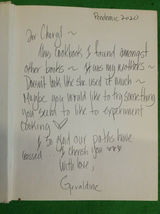 Pandemic 2020
Dear Cheryl ~
This Cookbook I found amongst
other books ~ It was my mother's ~
Doesn't look like she used it much ~
Maybe you would like to try something
you said to like to experiment
cooking
I so glad our paths have
crossed I cherish you
With love,
Geraldine